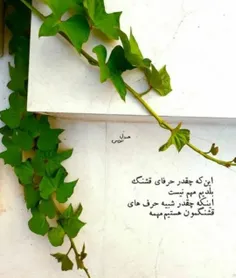 این که چقدر حرفای قشنگ
بلدیم مهم نیست
اینکه چقدر شبیه حرف های
قشنگمون هستیم مهمه